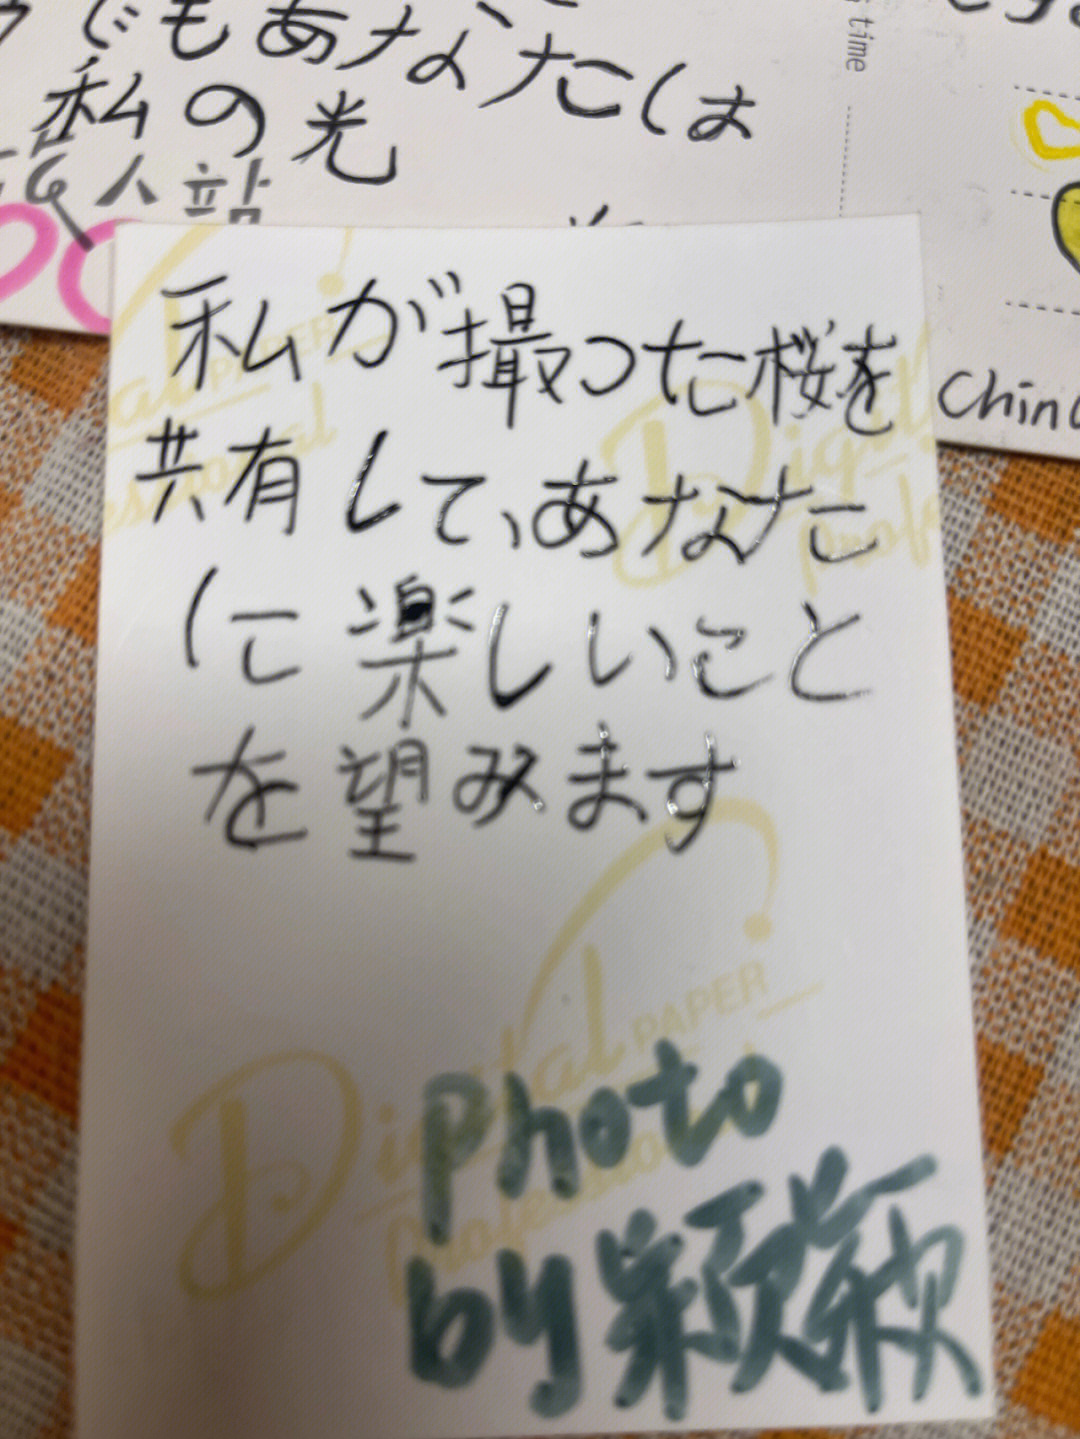 でもあなたは
私の光
人站
time
私が撮った桜を
共有して、あなた
に楽しいこと
を望みます
China
Digital PAPER
Professional
Photo
by